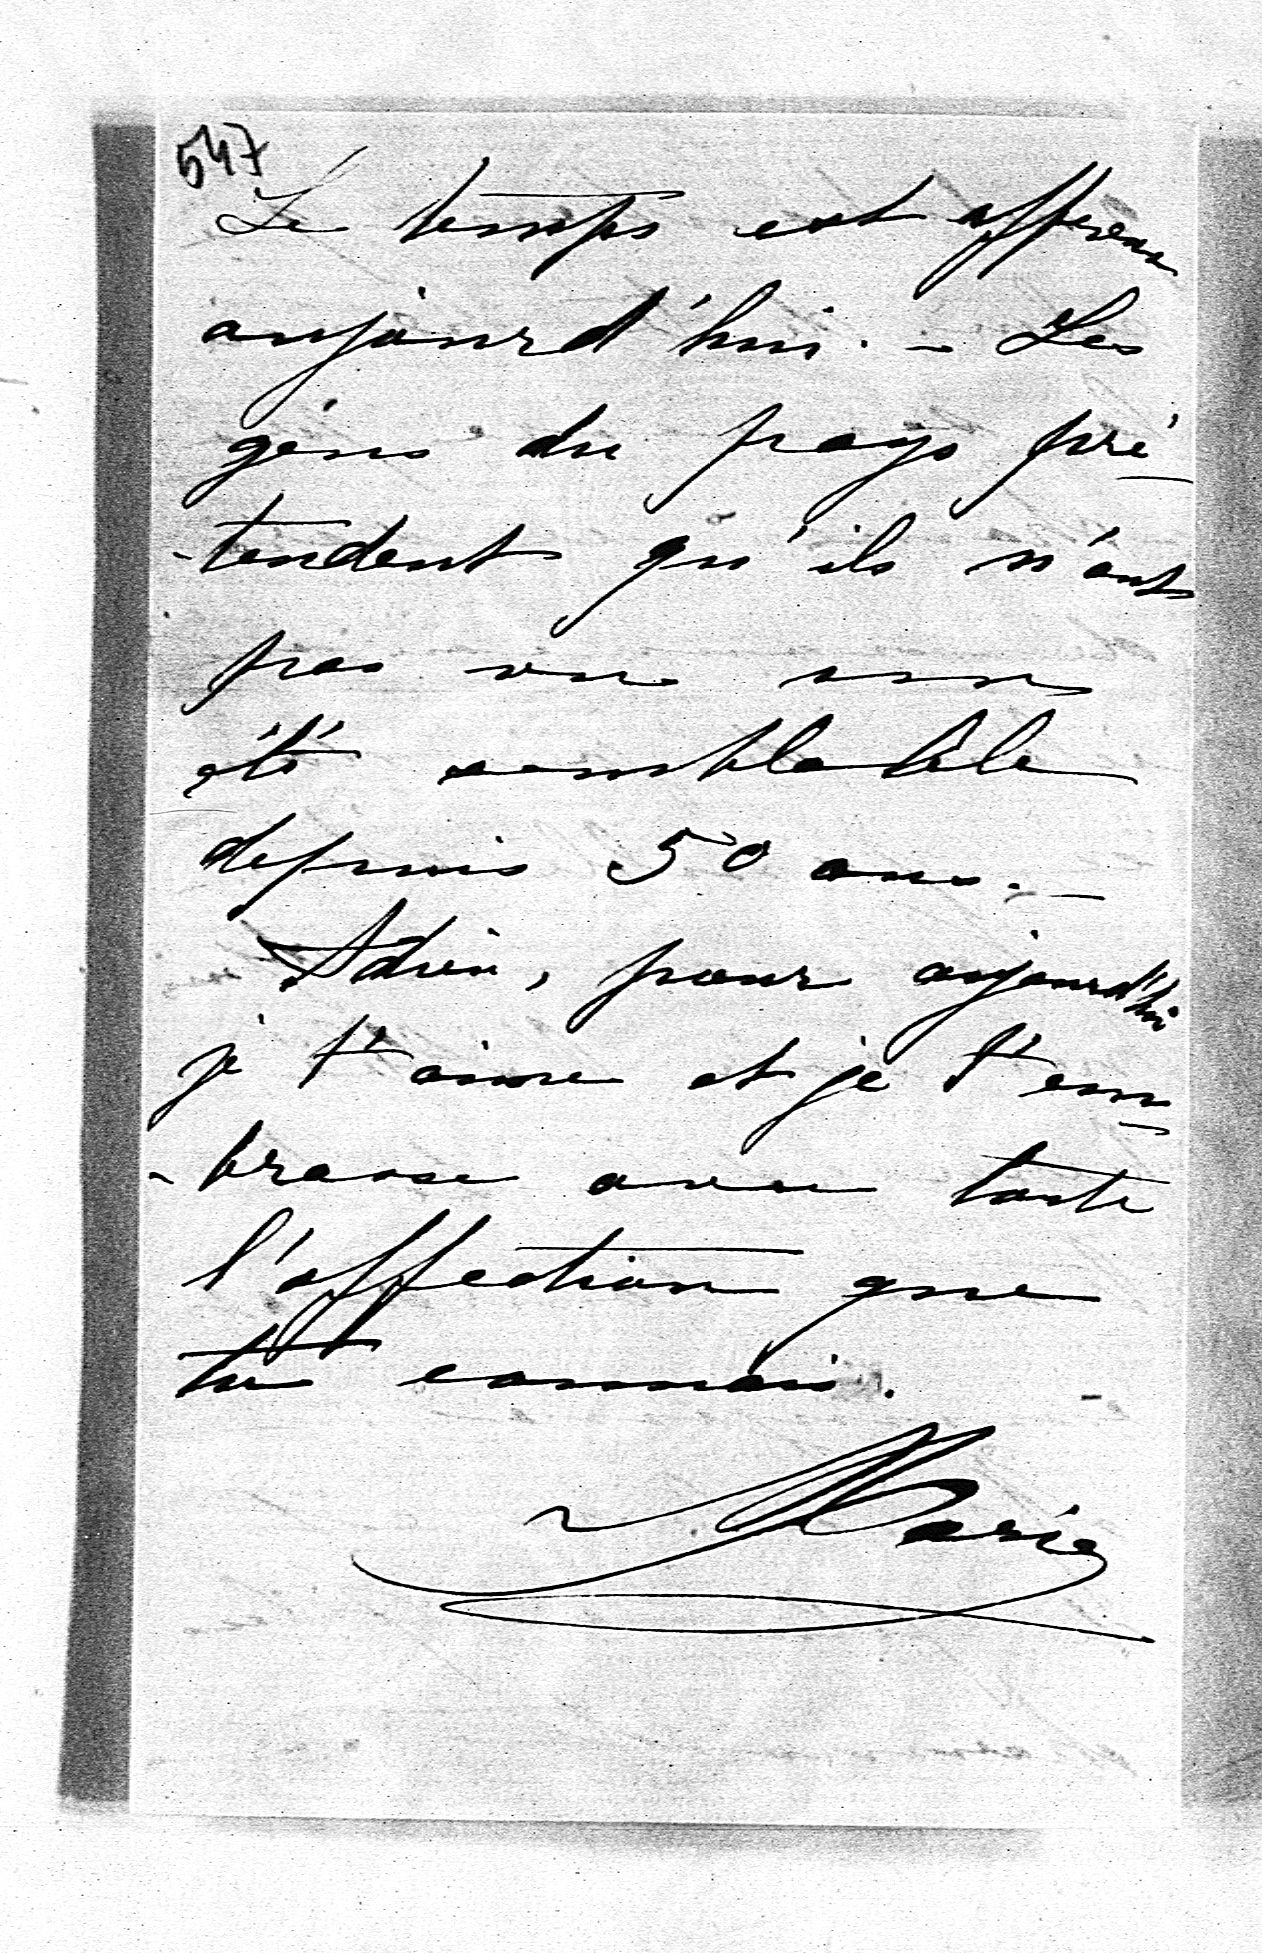 547
Le temps est affreux
aujourd'hui. - Les
gens du pays pré-
-tendent qu'ils n'ont
pas vu un
été semblable
depuis 50 ans. -
Adieu, pour aujourd'hui
je t'aime et je t'em-
-brasse avec toute
l'affection que
tu connais. -
Marie